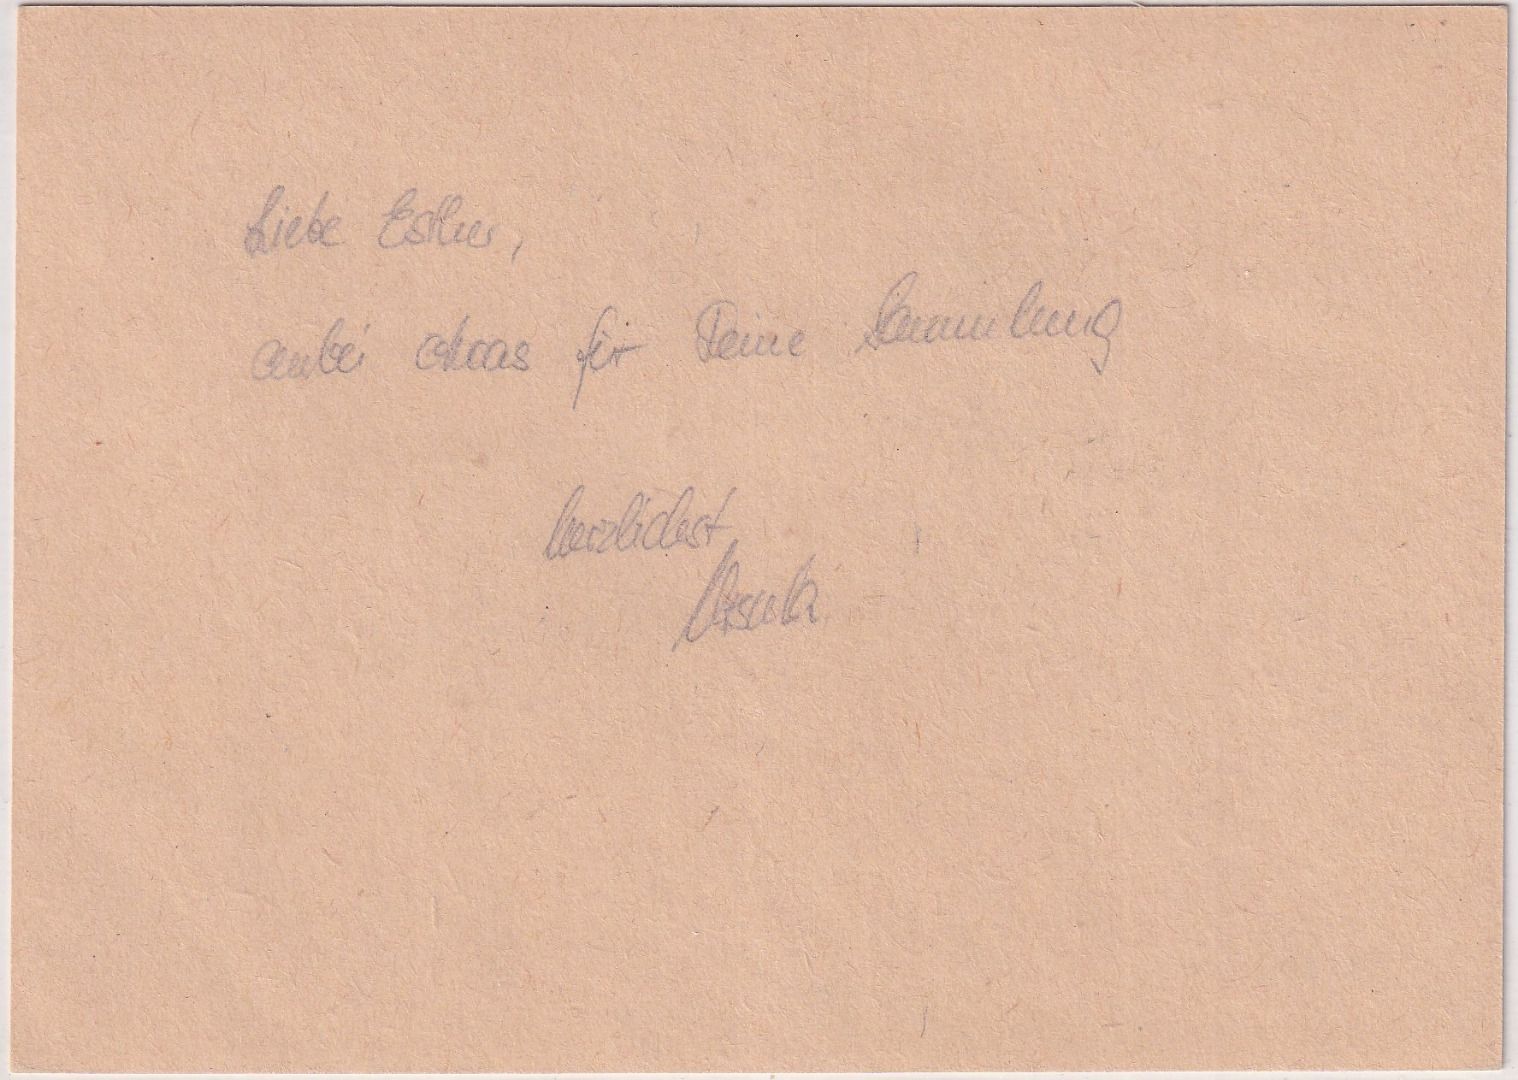 Liebe Esther,
anbei etwas für Deine Sammlung
herzlichst
Ursula